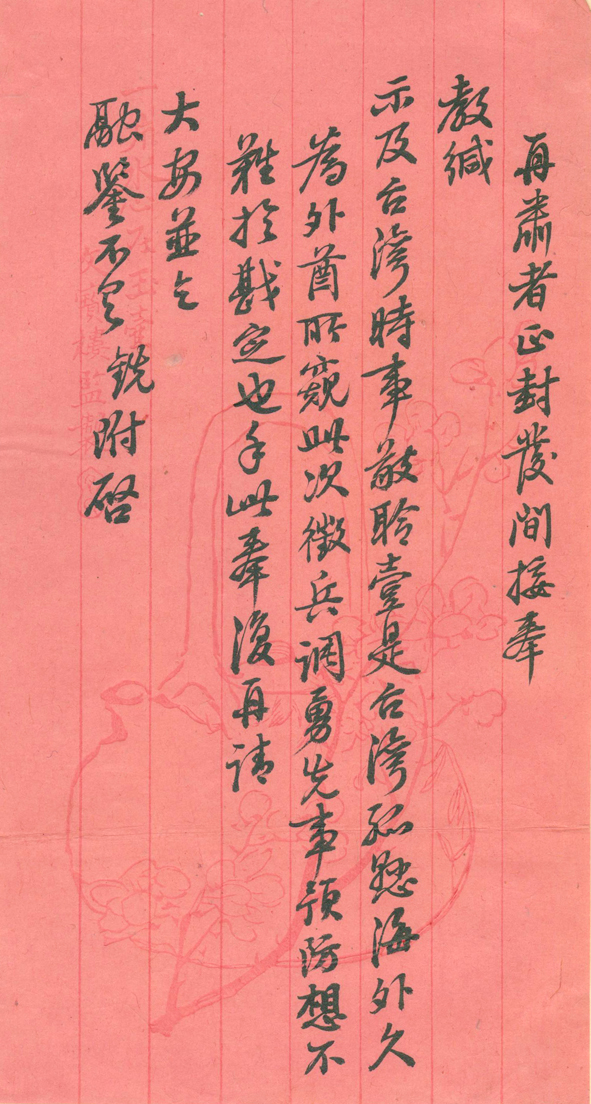 再肅者正封發間接奉
教緘
示及台灣時事敬聆壹是台灣孤懸海外久
為外酋所窺此次徵兵調勇先事預防想不
難於戡定也手此奉復再請
大安並乞
融鑒不宣 銑附啓